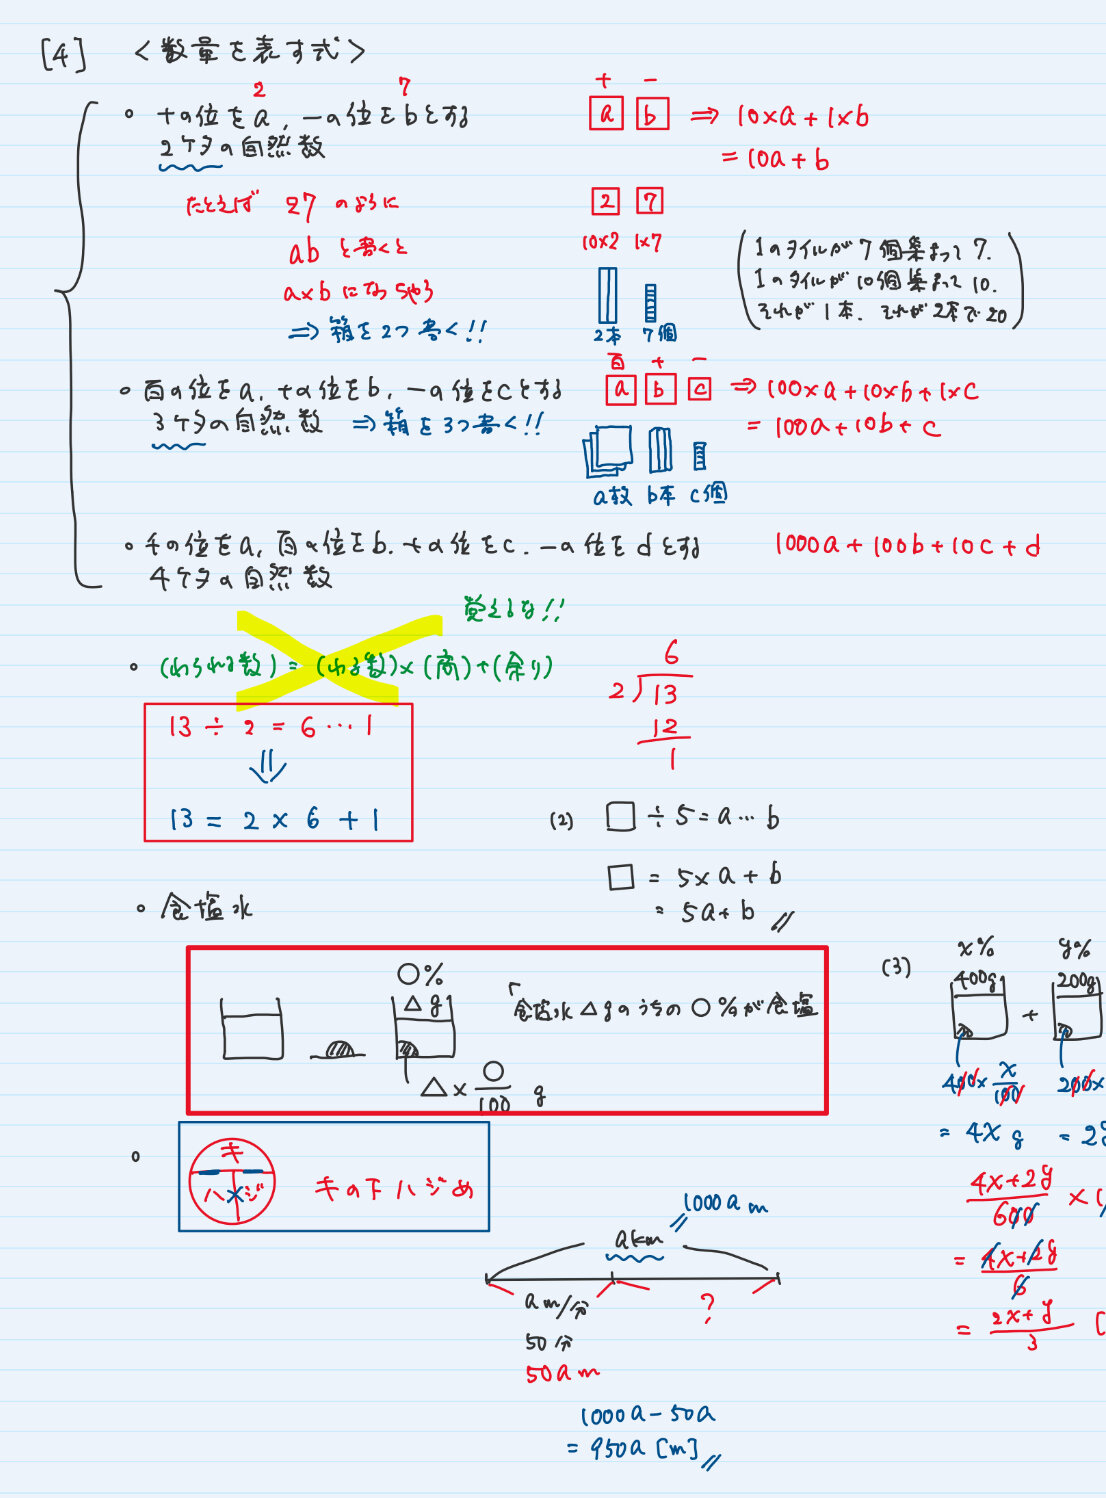 [4] <数量を表す式>
2 7
。十の位をa, 一の位をbとする
2ケタの自然数
十 一
a b ⇒ 10×a+1×b
= 10a+b
たとえば 27 のように
ab と書くと
a×b になっちゃう
⇒ 箱を2つ書く!!
2 7
10×2 1×7
2本 7個
(1のタイルが7個集まって7.
1のタイルが10個集まって10.
それが1本. それが2本で20)
。百の位をa, 十の位をb, 一の位をcとする
3ケタの自然数 ⇒ 箱を3つ書く!!
百 十 一
a b c ⇒ 100×a+10×b+1×c
= 100a+10b+c
a枚 b本 c個
。千の位をa, 百の位をb, 十の位をc, 一の位をdとする
4ケタの自然数
1000a+100b+10c+d
覚えるな!!
。(わられる数)=(わる数)×(商)+(余り)
13 ÷ 2 = 6 … 1
⇓
13 = 2 × 6 + 1
6
2)13
12
1
(2) □ ÷ 5 = a … b
□ = 5×a+b
= 5a+b
。食塩水
○%
△g
「食塩水△gのうちの○%が食塩
△×○/100 g
(3) x% y%
400g + 200g
400×x/100 200×
= 4x g = 2y
(4x+2y)/600 ×
= (4x+2y)/6
= (2x+y)/3 [
。キ
ハ×ジ
キの下ハジめ
1000a m
a km
a m/分 ?
50分
50a m
1000a-50a
= 950a [m]